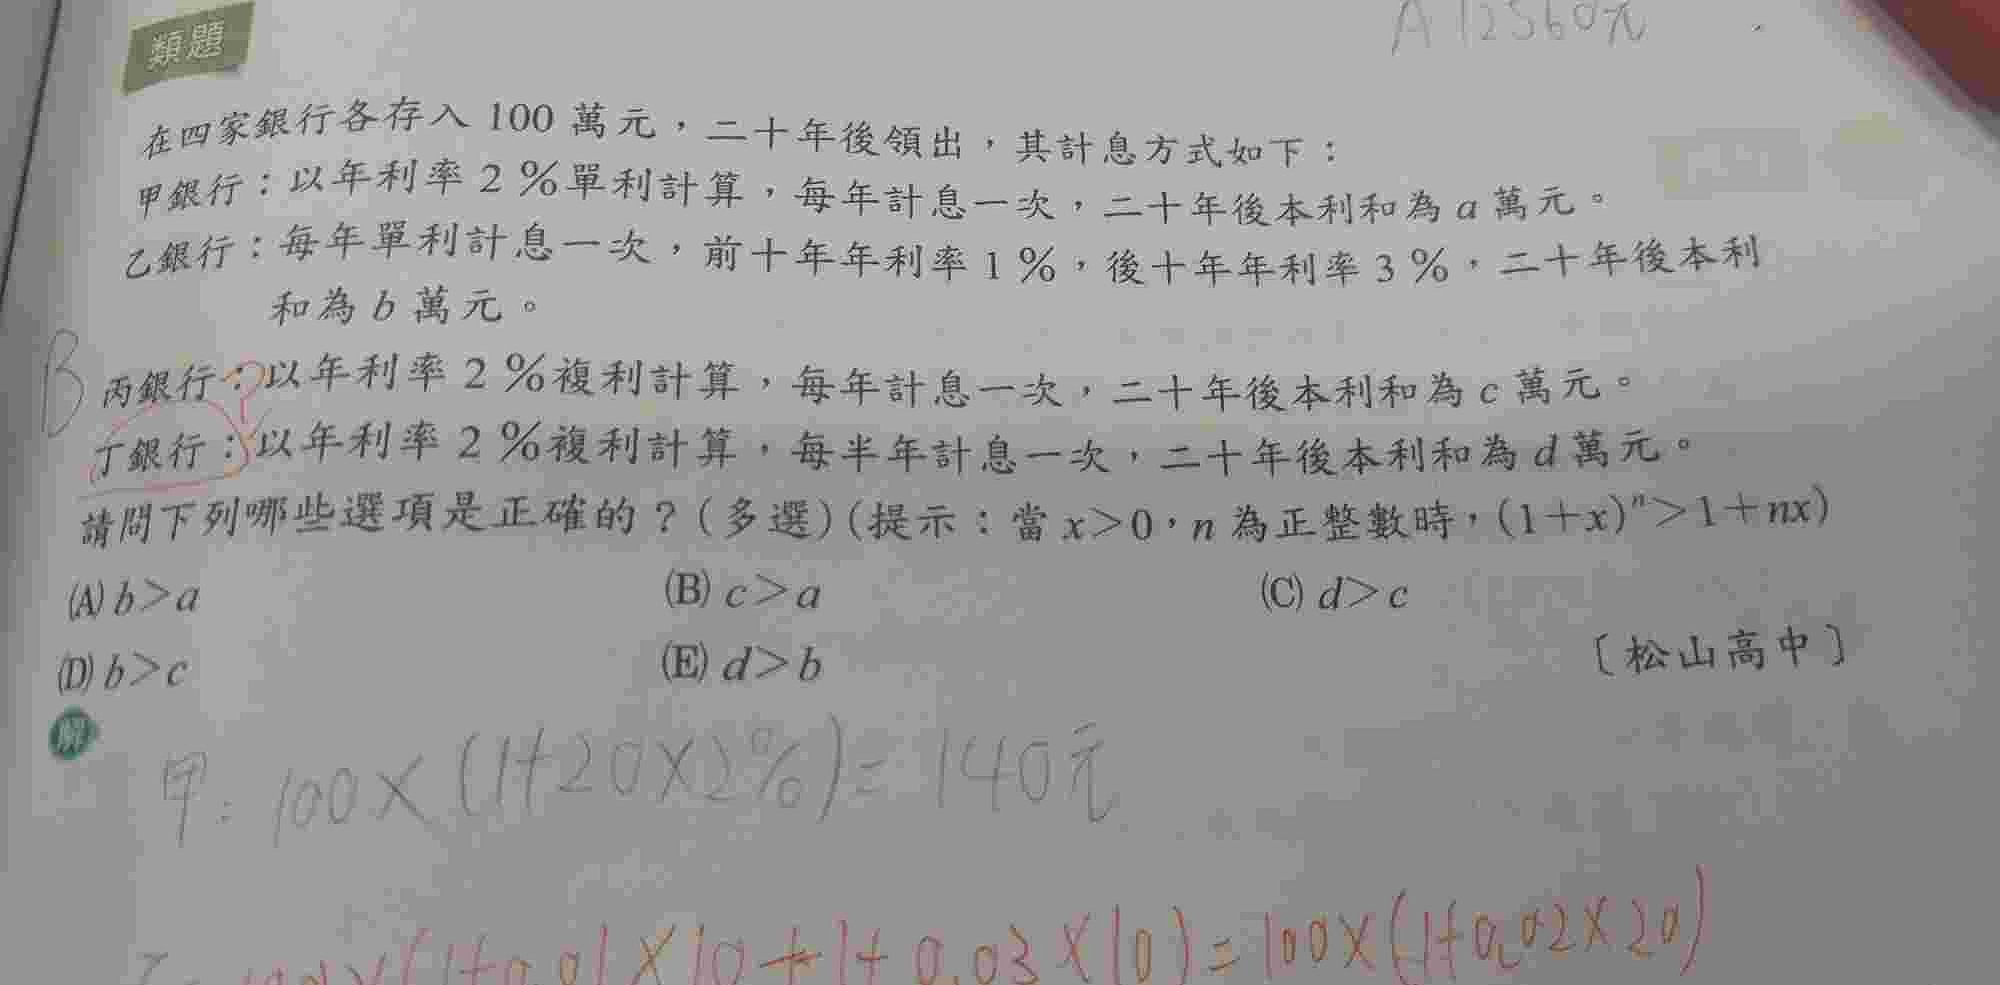 A 12560元
類題
在四家銀行各存入 100 萬元，二十年後領出，其計息方式如下：
甲銀行：以年利率 2 %單利計算，每年計息一次，二十年後本利和為 a 萬元。
乙銀行：每年單利計息一次，前十年年利率 1 %，後十年年利率 3 %，二十年後本利
和為 b 萬元。
B
丙銀行：以年利率 2 %複利計算，每年計息一次，二十年後本利和為 c 萬元。
丁銀行：以年利率 2 %複利計算，每半年計息一次，二十年後本利和為 d 萬元。
請問下列哪些選項是正確的？(多選)(提示：當 x>0，n 為正整數時，(1+x)ⁿ>1+nx)
(A) b>a (B) c>a (C) d>c
(D) b>c (E) d>b 〔松山高中〕
解
甲：100×(1+20×2%)=140元
(1+0.01×10+1+0.03×10)=100×(1+0.02×20)